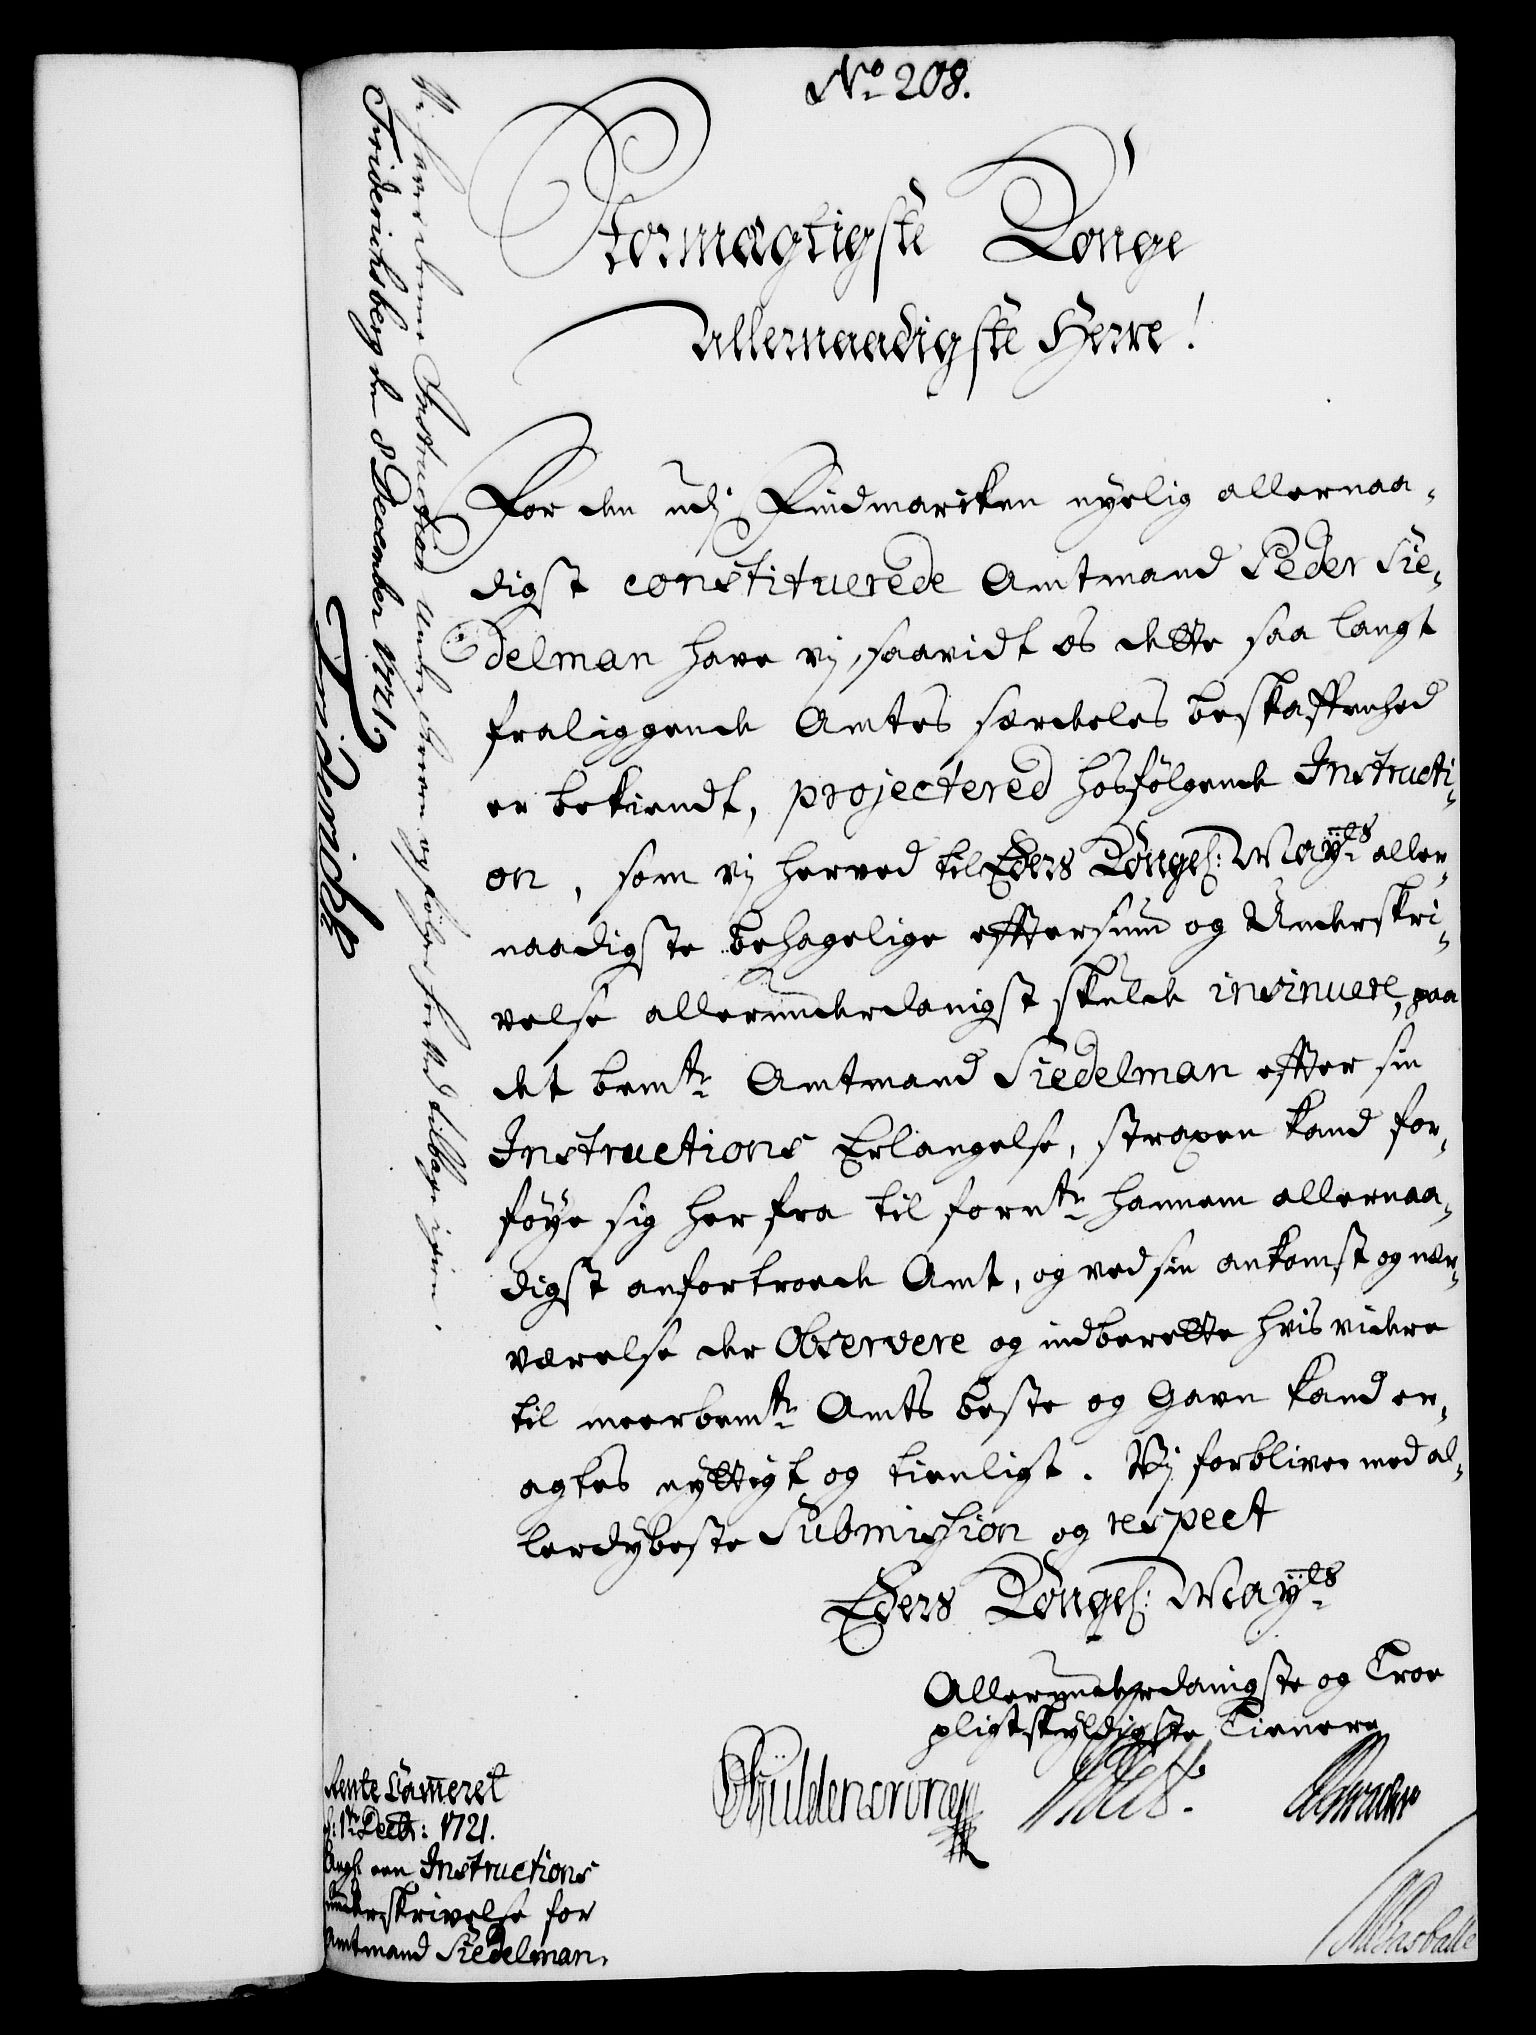 No 208.
Stormægtigste Konge
Allernaadigste Herre!
For den udj Findmarcken nyelig allernaa-
digst constituerede Amtmand Peder Sie-
delman have vj, saavidt os dette saa langt
fraliggende Amtes særdeles beskaffenhed
er bekiendt, projectered hosfølgende Instructi-
on, som vj herved til Eders Kongel: Mayts aller-
naadigste behagelige efftersiun og Underskri-
velse allerunderdanigst skulde insinuere, paa
det bemte Amtmand Siedelman effter sin
Instructions Erlangelse, straxen kand for-
føye sig her fra til fornte hannem allernaa-
digst anfortroede Amt, og ved sin ankomst og nær-
værelse der Observere og indberette hvis videre
til meerbemte Amts beste og Gavn kand er-
agtes nyttigt og tienligt. Vj forbliver med al-
lerdybeste Submission og respect
Eders Kongel: Mayts
Allerunderdanigste og Troe
pligtskyldigste Tienere
Güldencrone
Rente Cammeret
d: 1te Decb: 1721.
Angl een Instructions
underskrivelse for
Amtmand Siedelman.
Vi haver denne Instruction underskreven og følger her ved tilbage igien.
Friderichsberg den 8 December 1721
Friderich